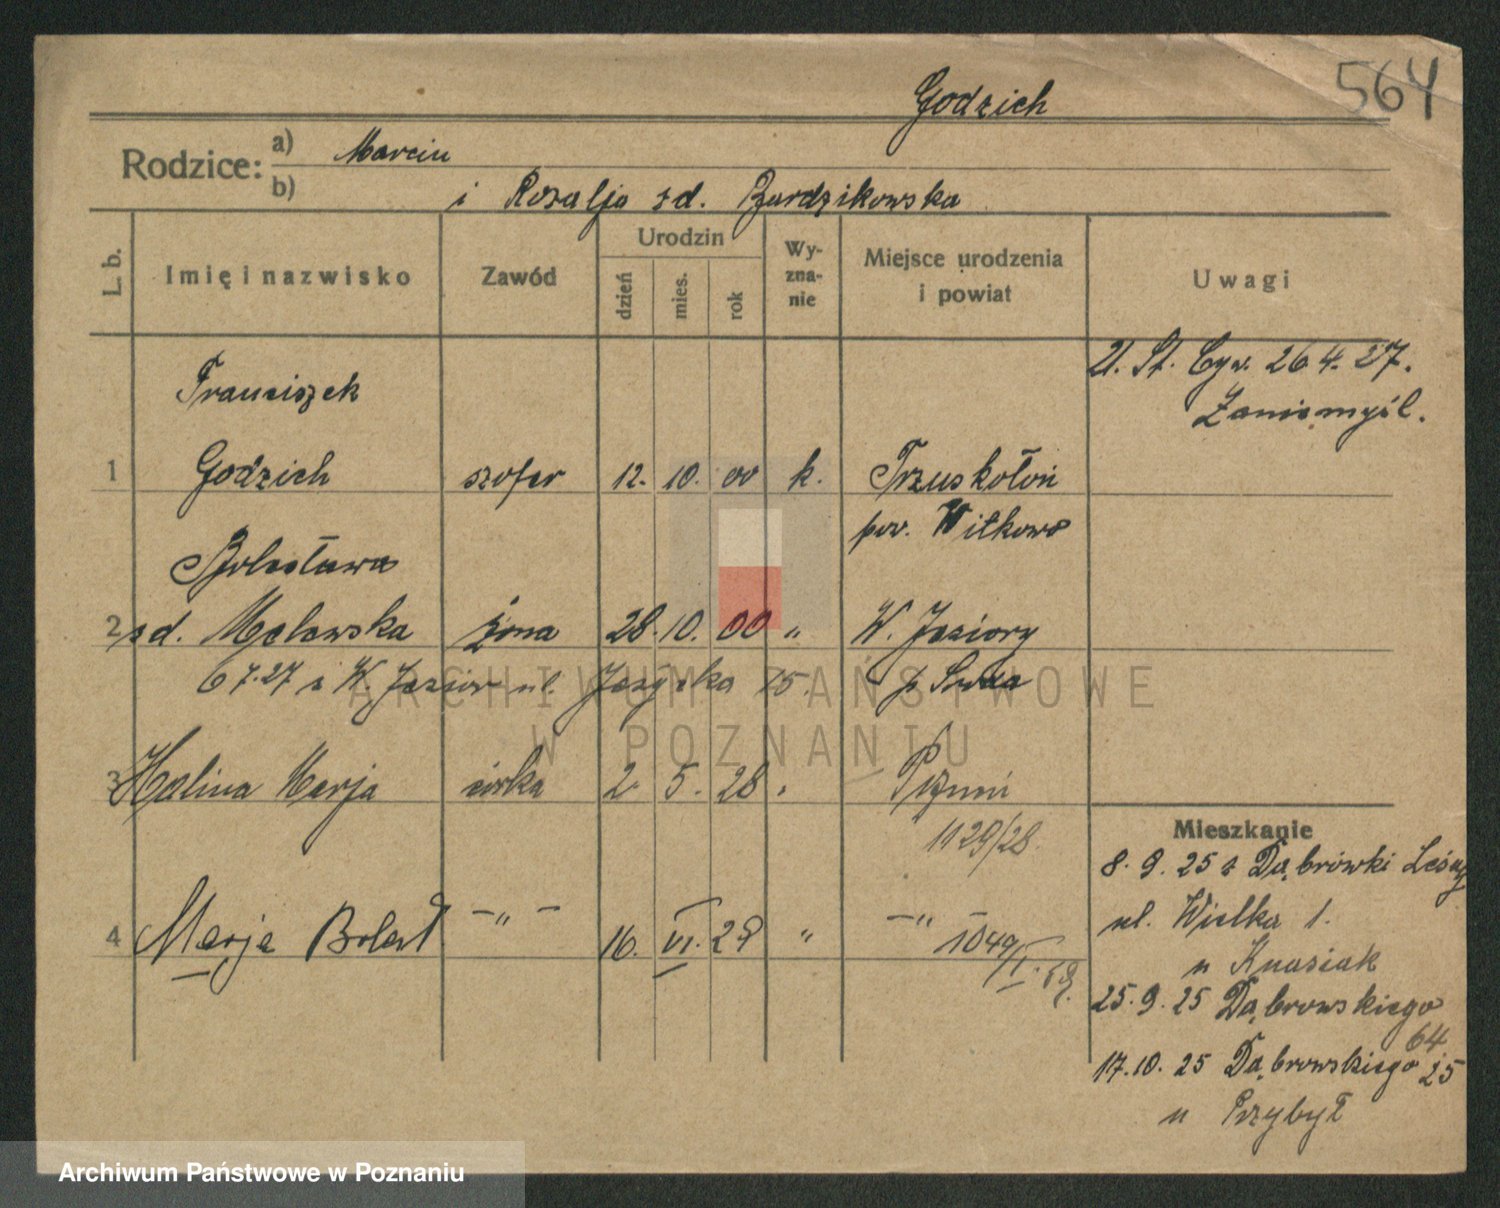 564
Godzich
Rodzice: a) Marcin
b) i Rozalja zd. Burdzikowska
L. b. Imię i nazwisko Zawód Urodzin dzień mies. rok Wyznanie Miejsce urodzenia i powiat Uwagi
U. St. Cyw. 26.4.27.
Zaniemyśl.
Franciszek
1 Godzich szofer 12. 10. 00 k. Trzuskołoń
pow. Witkowo
Bolesława
2 zd. Malewska żona 28. 10. 00 " W. Jeziory
6 7.27 z W. Jezior ul. 15. p Środa
3 Halina Marja córka 2 5. 28 " Pznań
1129/28.
4 Marja Bolesł —"— 16. VI. 29 " —"—
Mieszkanie
8. 9. 25 z Dąbrówki Leśnej
ul. Wielka 1.
u Knasiak
25. 9. 25 Dąbrowskiego
64
17.10. 25 Dąbrowskiego 25
u Przybył
ARCHIWUM PAŃSTWOWE
W POZNANIU
Archiwum Państwowe w Poznaniu